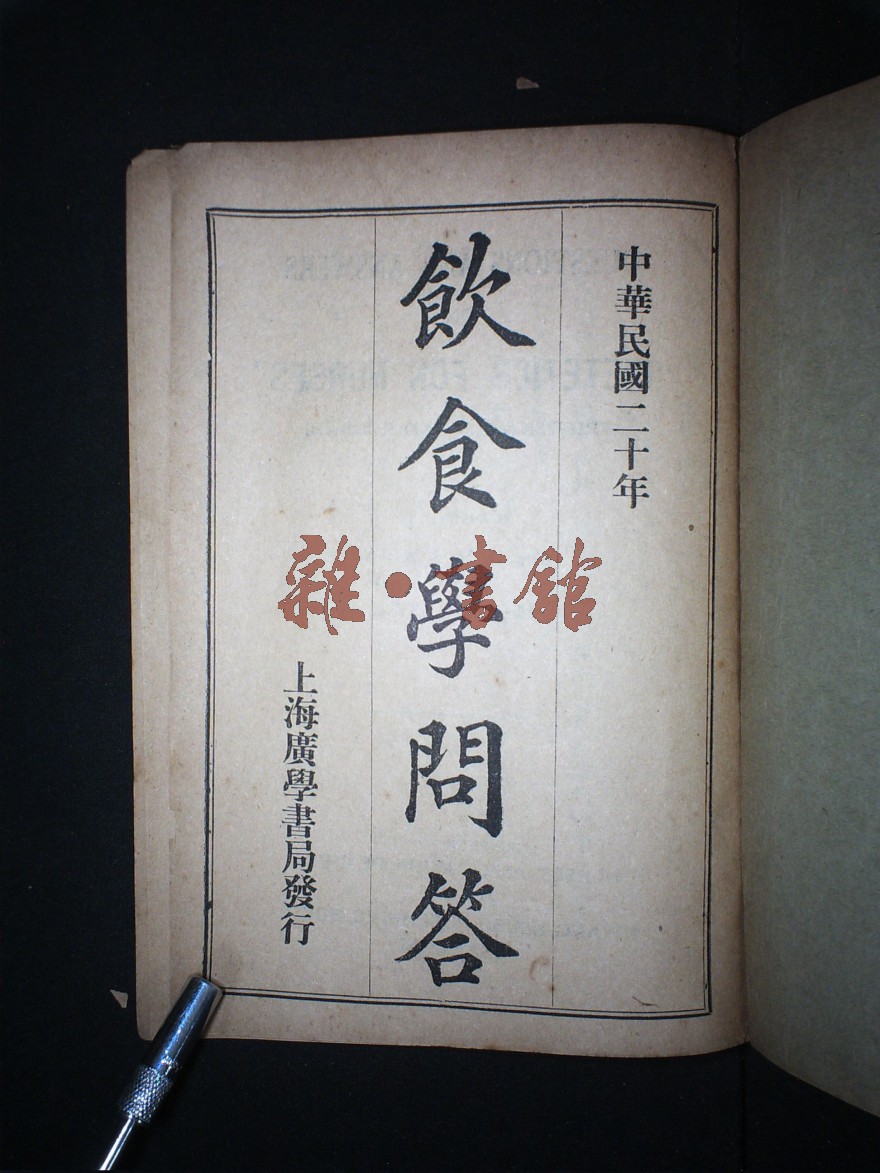 中華民國二十年
飲食學問答
上海廣學書局發行
雜·書館